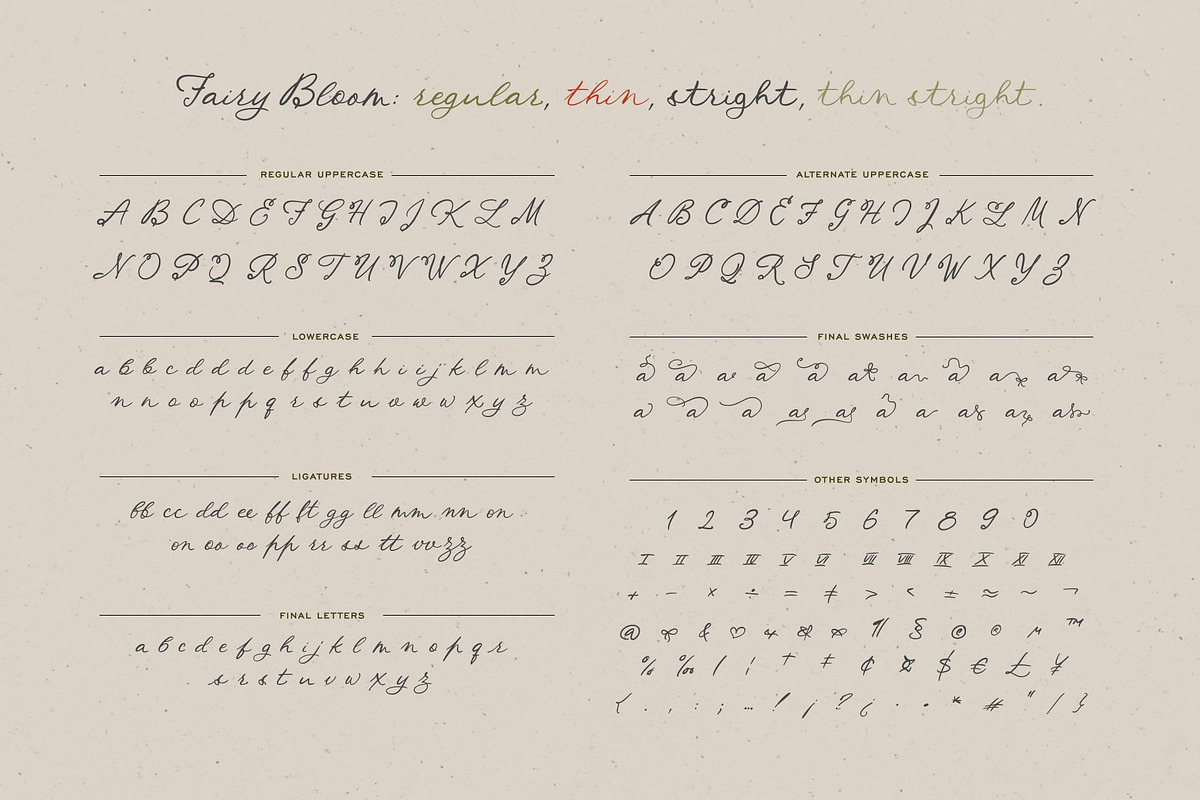 Fairy Bloom: regular, thin, stright, thin stright.
REGULAR UPPERCASE
A B C D E F G H I J K L M
N O P Q R S T U V W X Y Z
LOWERCASE
a b b c d d d e f f g h h i i j k l m m
n n o o p p q r s t u v w w x y z
LIGATURES
bb cc dd ee ff ft gg ll mm nn on
on oo oo pp rr ss tt vv zz
FINAL LETTERS
a b c d e f g h i j k l m n o p q r
s r s t u v w x y z
ALTERNATE UPPERCASE
A B C D E F G H I J K L M N
O P Q R S T U V W X Y Z
FINAL SWASHES
a a a a a a a a a a
a a a a a a a a a a
OTHER SYMBOLS
1 2 3 4 5 6 7 8 9 0
I II III IV V VI VII VIII IX X XI XII
+ − × ÷ = ≠ > < ± ≈ ~ ¬
@ & ♡ ¶ § © ® µ ™
% ‰ / ¦ † ‡ ¢ ¤ $ € £ ¥
{ . , : ; … ! ¡ ? ¿ · • * # " / }